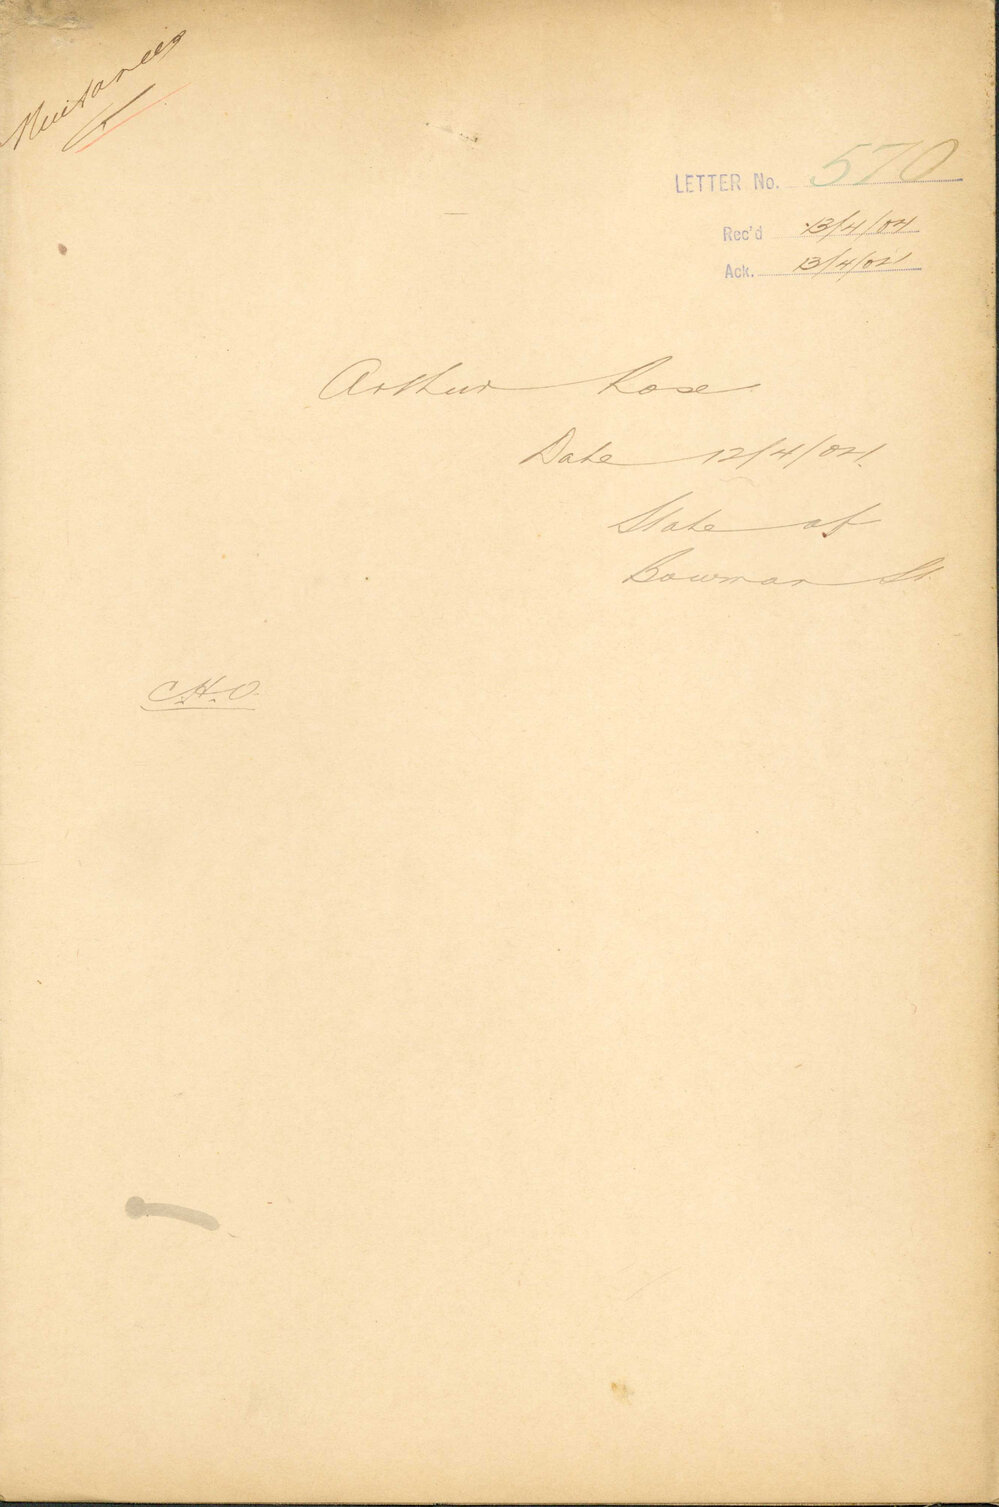 Nuisances
LETTER No. 570
Rec'd 13/4/04
Ack. 13/4/04
Arthur Rose
Date 12/4/04.
State of
Bowman St.
C.H.O.